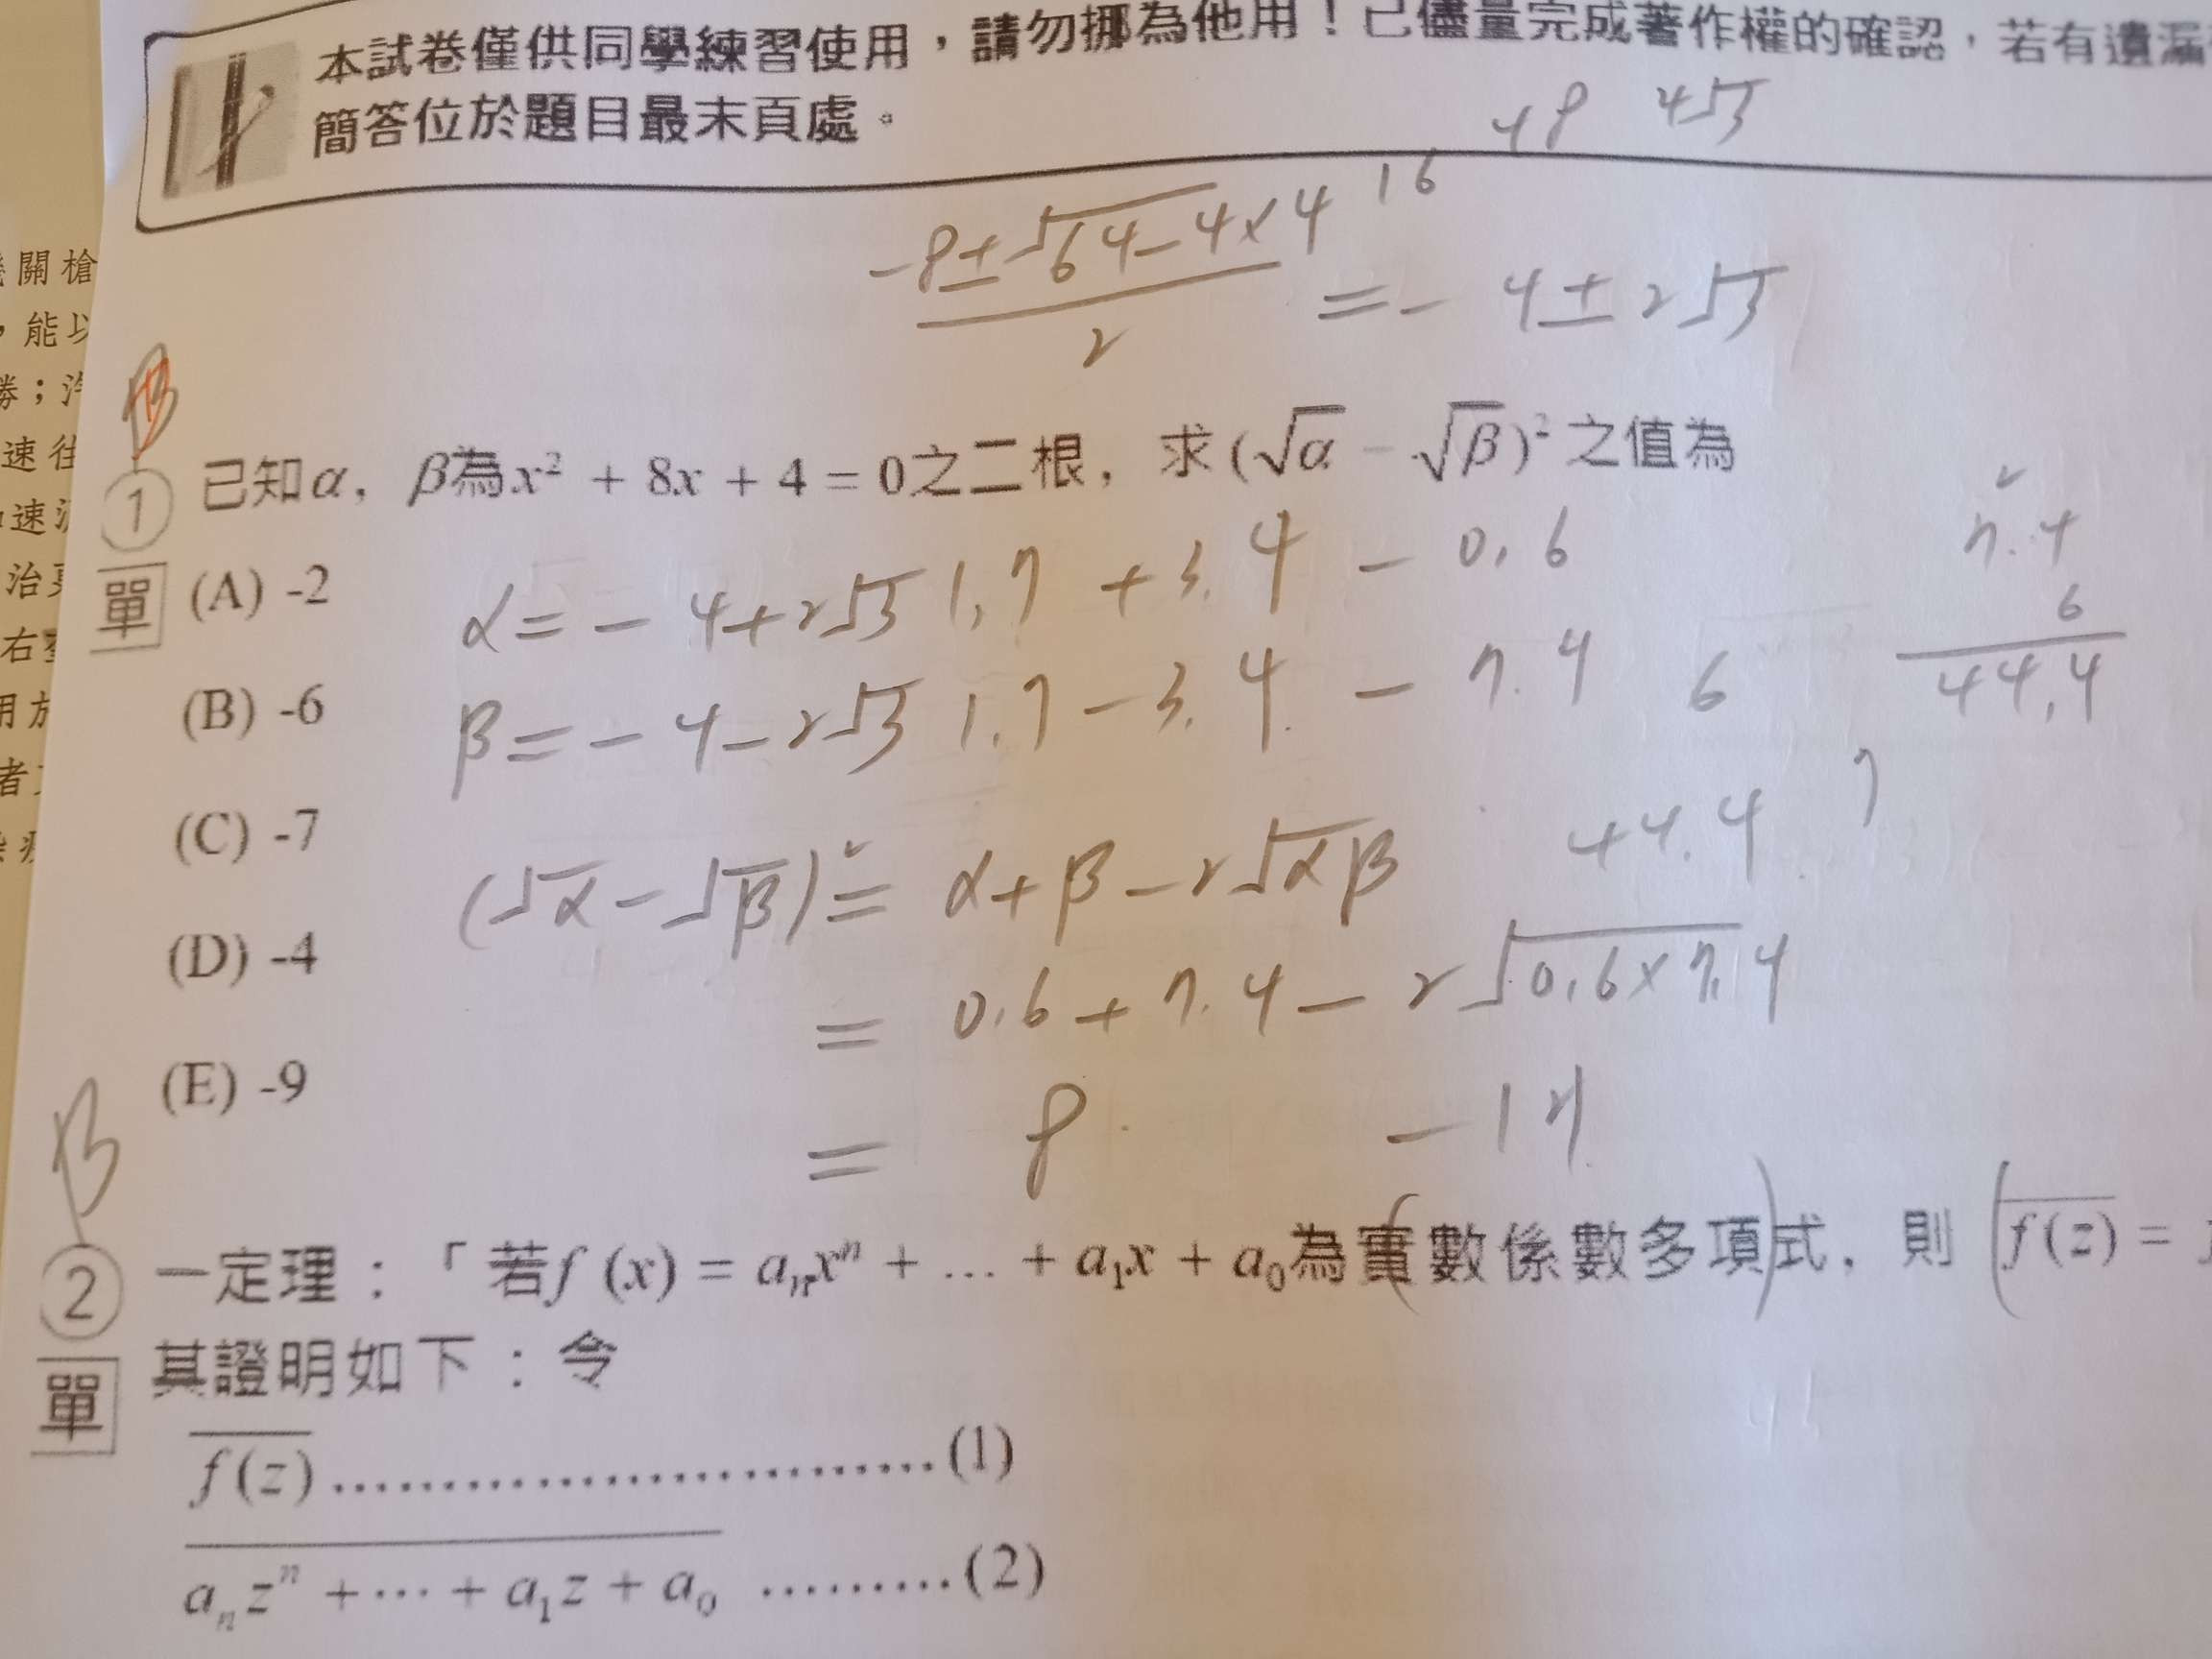 本試卷僅供同學練習使用，請勿挪為他用！已儘量完成著作權的確認，若有遺漏
簡答位於題目最末頁處。
48 4√3
16
(-8±√64-4×4)/2 = -4±2√3
B
① 已知α，β為x² + 8x + 4 = 0之二根，求(√α - √β)²之值為
單
(A) -2
α=-4+2√3 1.7 +3.4 -0.6
(B) -6
β=-4-2√3 1.7 -3.4 -7.4 6
2
7.4
6
44.4
(C) -7
(√α-√β)²= α+β-2√αβ 44.4 7
(D) -4
= 0.6+7.4-2√0.6×7.4
(E) -9
= 8 -14
B
② 一定理：「若f (x) = aₙxⁿ + … + a₁x + a₀為實數係數多項式，則 f(z) =
單
其證明如下：令
f(z) ...........................(1)
aₙzⁿ +⋯ + a₁z + a₀ .........(2)
機關槍
，能以
勝；汽
速往
速
治
右
用於
者